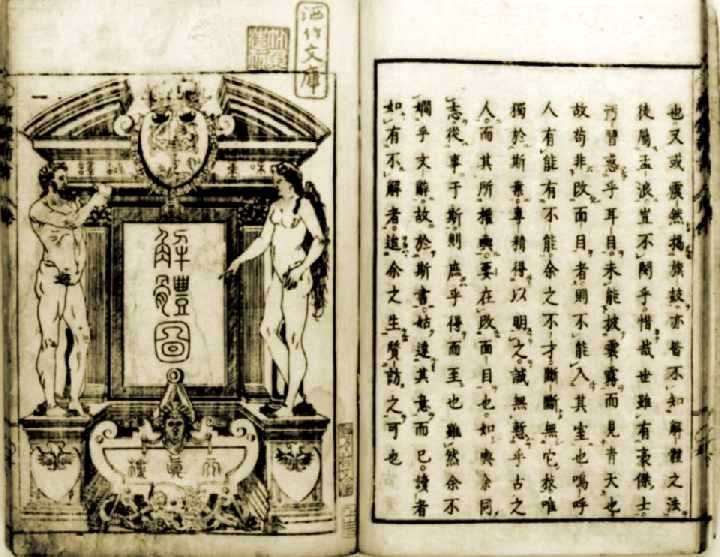 也又或靡然揭旗鼓亦皆不知解體之法
徒屬孟浪豈不聞乎惜哉世雖有豪傑士
汚習惑乎耳目未能披雲霧而見青天也
故苟非改面目者則不能入其室也嗚呼
人有能有不能余之不才斷斷無它技唯
獨於斯業專精得以明之誠無慙乎古之
人而其所權輿要在改面目也如與余同
志從事于斯則庶乎得而至也雖然余不
嫺乎文辭故於斯書姑達其意而已讀者
如有不解者進余之生質訪之可也
酒竹文庫
解體圖